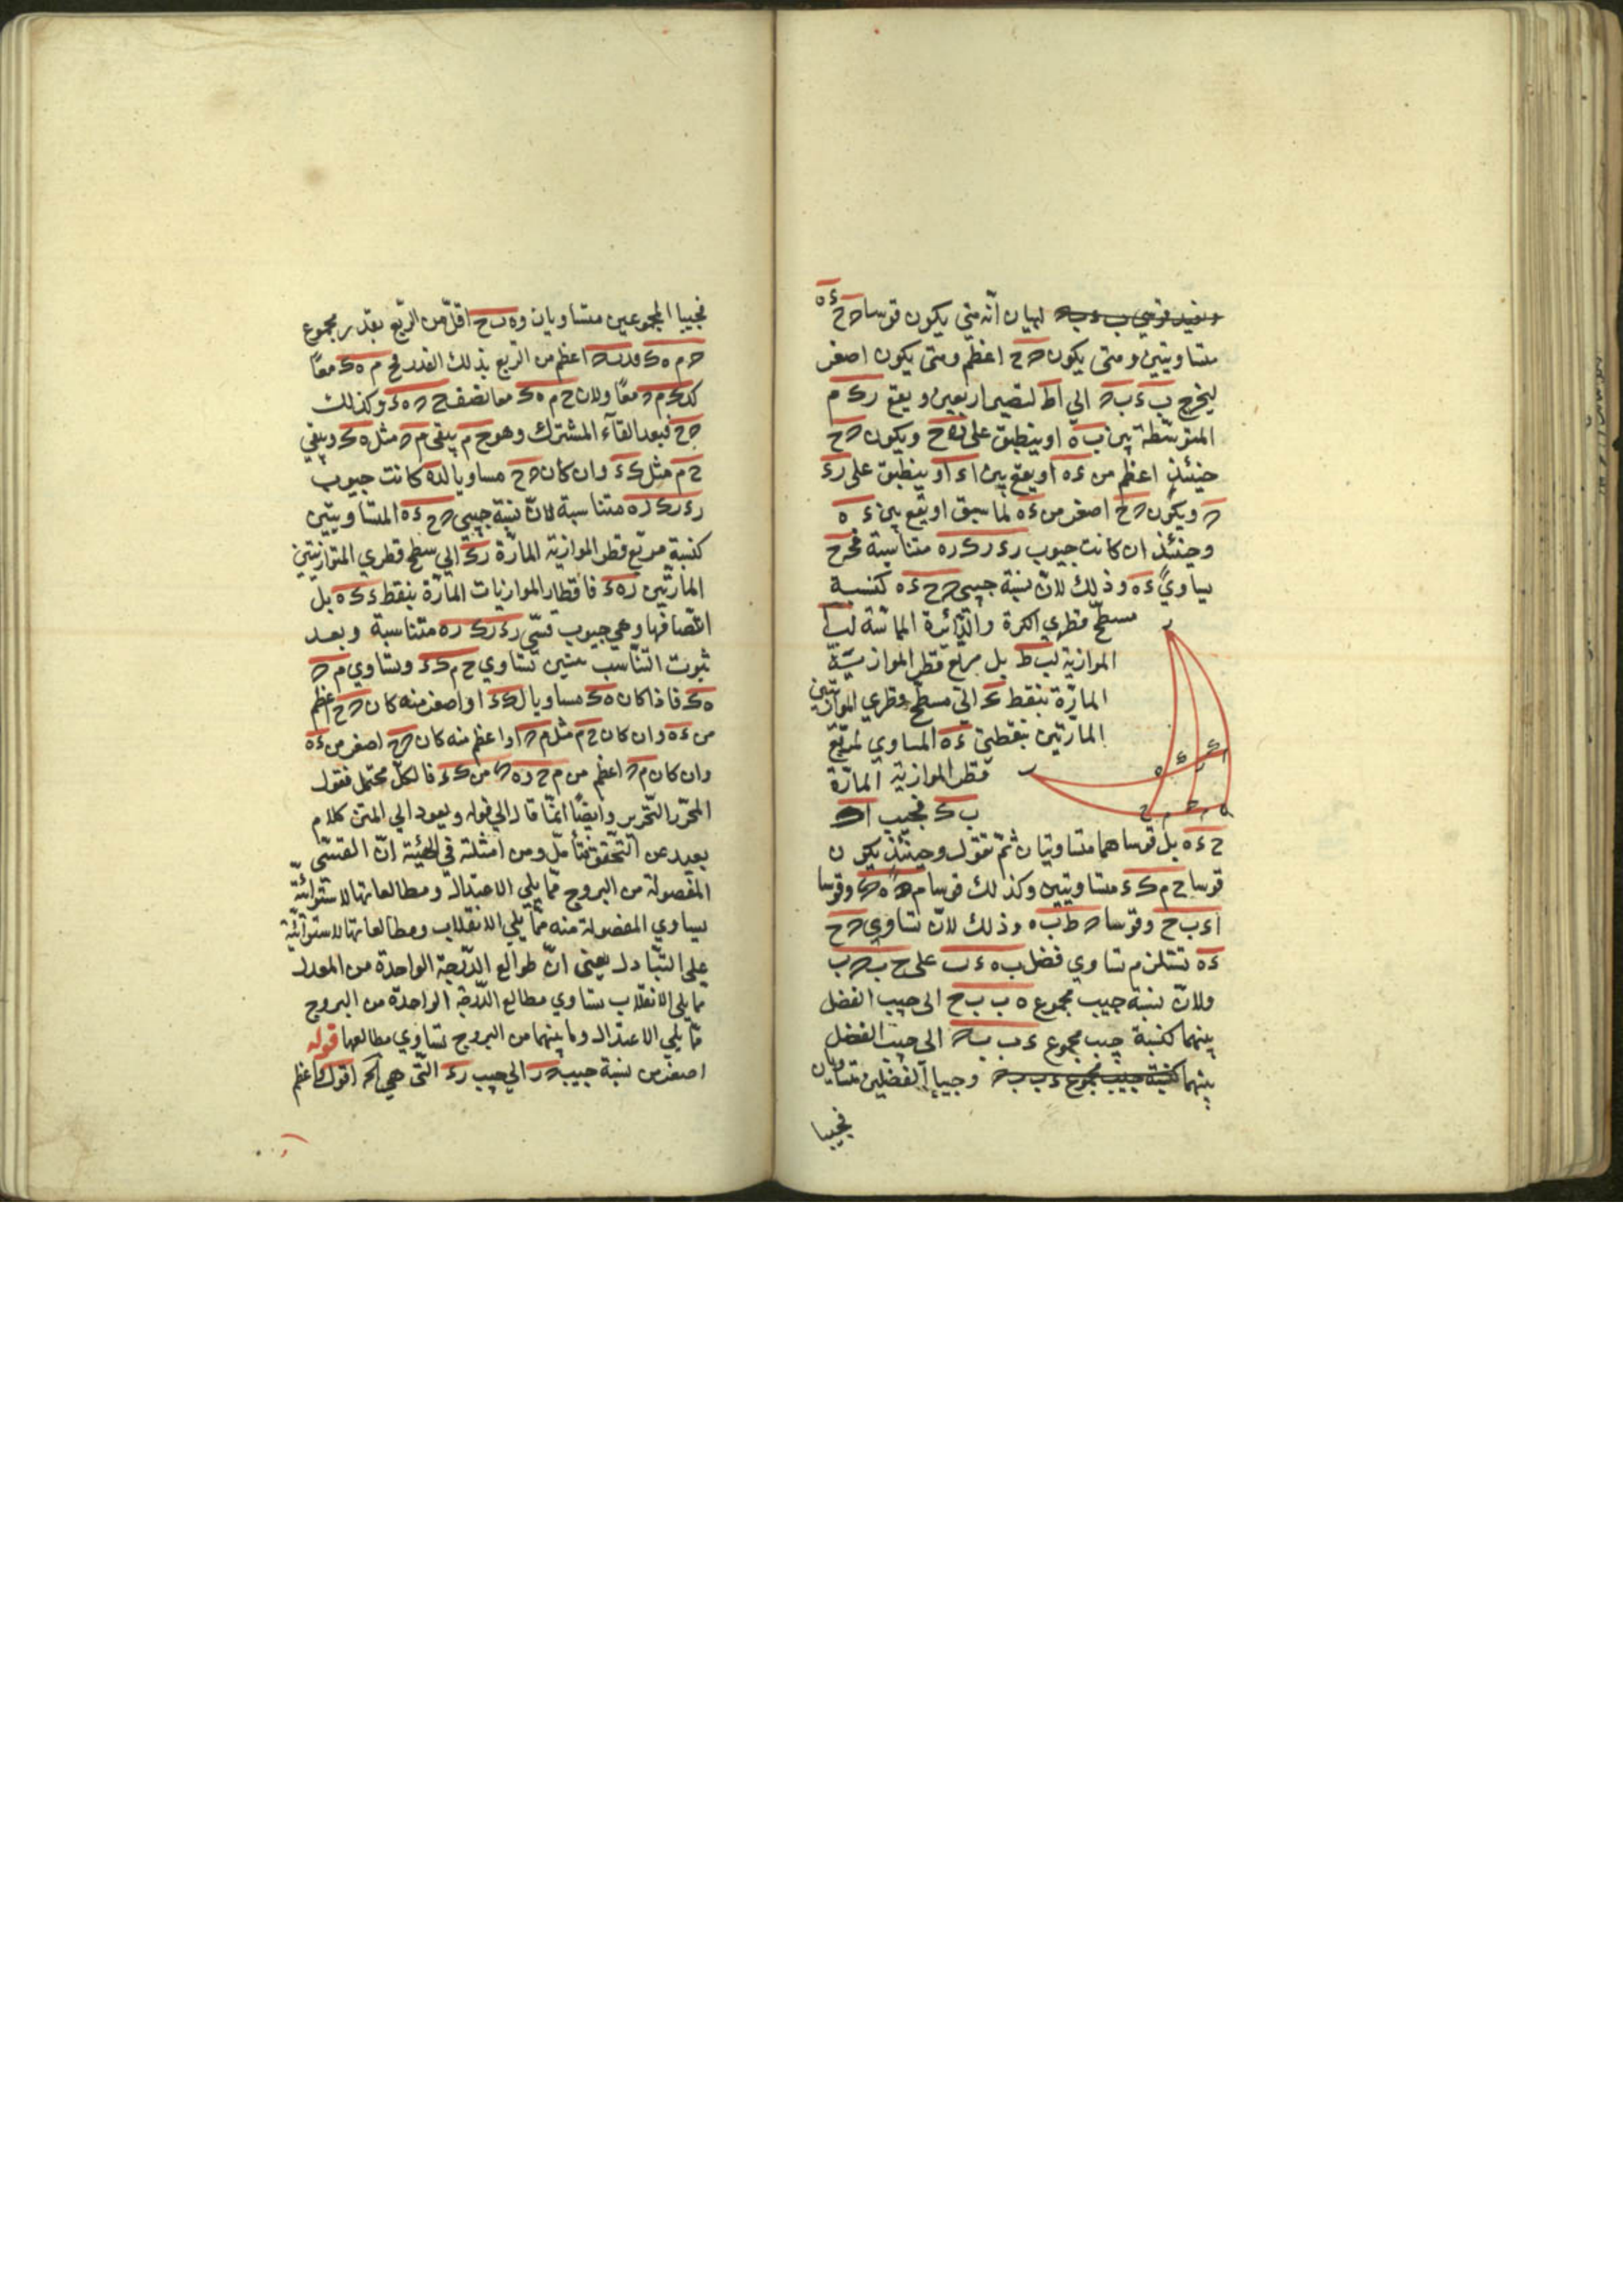 لبيان انّه متى يكون قوسا ه ح ء ه
متساويتين ومتى يكون ه ح اعظم ومتى يكون اصغر
ليخرج ب ء ب ه الى ا ط لتصير ارباعين ويقع ر ك م
المتوسّطة بين ب ه او ينطبق على ه ح ويكون ه ح
حينئذٍ اعظم من ء ه او يقع بين ا ء او ينطبق على ر ء
ه ويكون ه ح اصغر من ء ه لما سبق او يقع بين ء ه
وحينئذٍ ان كانت جيوب ر ء ر ك ر ه متناسبة فح ح
يساوي ء ه وذلك لانّ نسبة جيبي ه ح ء ه كنسبة
مسطّح قطري الكرة والدّائرة المماسّة لب ط
الموازية لب ط بل مربع قطر الموازية
المارّة بنقطة ك الى مسطّح قطري الموازيتين
المارتين بنقطتي ء ه المساوي لمربّع
قطر الموازية المارّة
ب ك فجيب
ح ء ه بل قوساهما متساويتان ثمّ نقول وحينئذٍ يكون
قوسا ح م ك ء متساويتين وكذلك قوسا م ه ه ك وقوسا
ا ء ب ح وقوسا ه ط ب ه وذلك لانّ تساوي ه ح
ء ه تستلزم تساوي فضل ب ه ء ب على ح ب ه ب
ولانّ نسبة جيب مجموع ه ب ب ح الى جيب الفضل
بينهما كنسبة جيب مجموع ء ب ب ه الى جيب الفضل
بينهما وجيبا الفضلين متساويان
فجيبا
فجيبا المجموعين متساويان و ه ب ح اقلّ من الرّبع بقدر مجموع
ه م ه ك اعظم من الرّبع بذلك القدر فح م ه ك معًا
ك ء ك م ه معًا ولان ح م ه ك معا نصف ح ه ه ء وكذلك
ه ح فبعد القآء المشترك وهو ح م يبقى م ه مثل ه ك ويبقى
ح م مثل ك ء وان كان ه ح مساويا لء ه كانت جيوب
ر ء ر ك ر ه متناسبة لانّ نسبة جيبي ه ح ء ه المتساويتين
كنسبة مربّع قطر الموازية المارّة ر ك الى سطح قطري المتوازيتين
المارّتين ر ه ء فاقطار الموازيات المارّة بنقط ء ك ه بل
انصافها وهي جيوب قسّي ر ء ر ك ر ه متناسبة وبعد
ثبوت التناسب يتبيّن تساوي ح م ك ء وتساوي م ه
ه ك فاذا كان ه ك مساويا لك ء او اصغر منه كان ه ح اعظم
من ء ه وان كان ح م مثل م ه او اعظم منه كان ه ح اصغر من ء ه
وان كان م ه اعظم من م ح و ه ك من ك ء فالكلّ محتمل فقول
المحرّر التّحرير وايضًا انّما قال الى قوله ويعود الى المتن كلام
بعيد عن التّحقّق فتأمّل ومن امثلته في الهيئة انّ القسّي
المفصولة من البروج ممّا يلي الاعتدال ومطالعاتها الاستوائيّة
يساوي المفصولة منه ممّا يلي الانقلاب ومطالعاتها الاستوائيّة
على التّبادل يعنى انّ طوالع الدّرجة الواحدة من المعدل
مما يلي الانقلاب تساوي مطالع الدّرجة الواحدة من البروج
ممّا يلي الاعتدال وما بينهما من البروج تساوي مطالعها قوله
اصغر من نسبة جيب ه ر الى جيب ر ء التي هي الخ اقول واعظم